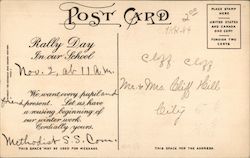 POST CARD
Rally Day
In our School
Nov. 2, at 11 A.M.
We want every pupil and
friend present. Let us have
a rousing beginning of
our winter work.
Cordially yours,
Methodist S.S. Com.
THIS SPACE MAY BE USED FOR MESSAGE
THIS SPACE FOR THE ADDRESS
PLACE STAMP
HERE
UNITED STATES
AND CANADA
ONE CENT
FOREIGN
TWO CENTS
Mr & Mrs Cliff Hill
City